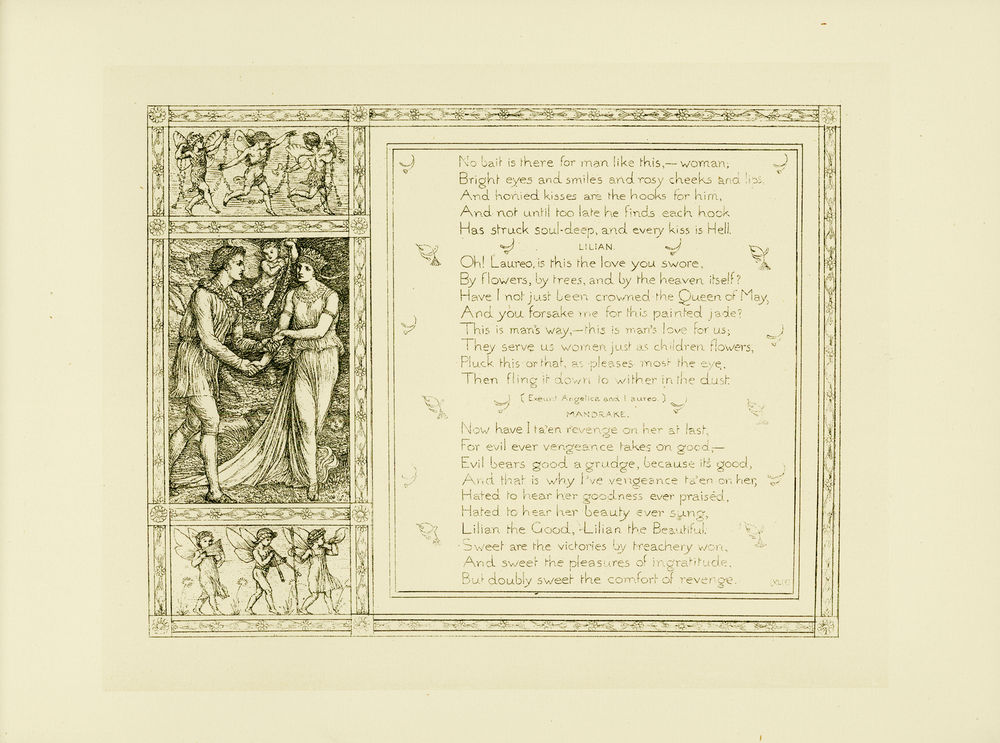 No bait is there for man like this,—woman;
Bright eyes and smiles and rosy cheeks and lips,
And honied kisses are the hooks for him,
And not until too late he finds each hook
Has struck soul-deep, and every kiss is Hell.
LILIAN.
Oh! Laureo, is this the love you swore,
By flowers, by trees, and by the heaven itself?
Have I not just been crowned the Queen of May,
And you forsake me for this painted jade?
This is man's way,—this is man's love for us;
They serve us women just as children flowers,
Pluck this or that, as pleases most the eye,
Then fling it down to wither in the dust.
[Exeunt Angelica and Laureo.]
MANDRAKE.
Now have I ta'en revenge on her at last,
For evil ever vengeance takes on good,—
Evil bears good a grudge, because it's good,
And that is why I've vengeance ta'en on her,
Hated to hear her goodness ever praisèd,
Hated to hear her beauty ever sung,
Lilian the Good,—Lilian the Beautiful.
Sweet are the victories by treachery won,
And sweet the pleasures of ingratitude,
But doubly sweet the comfort of revenge.